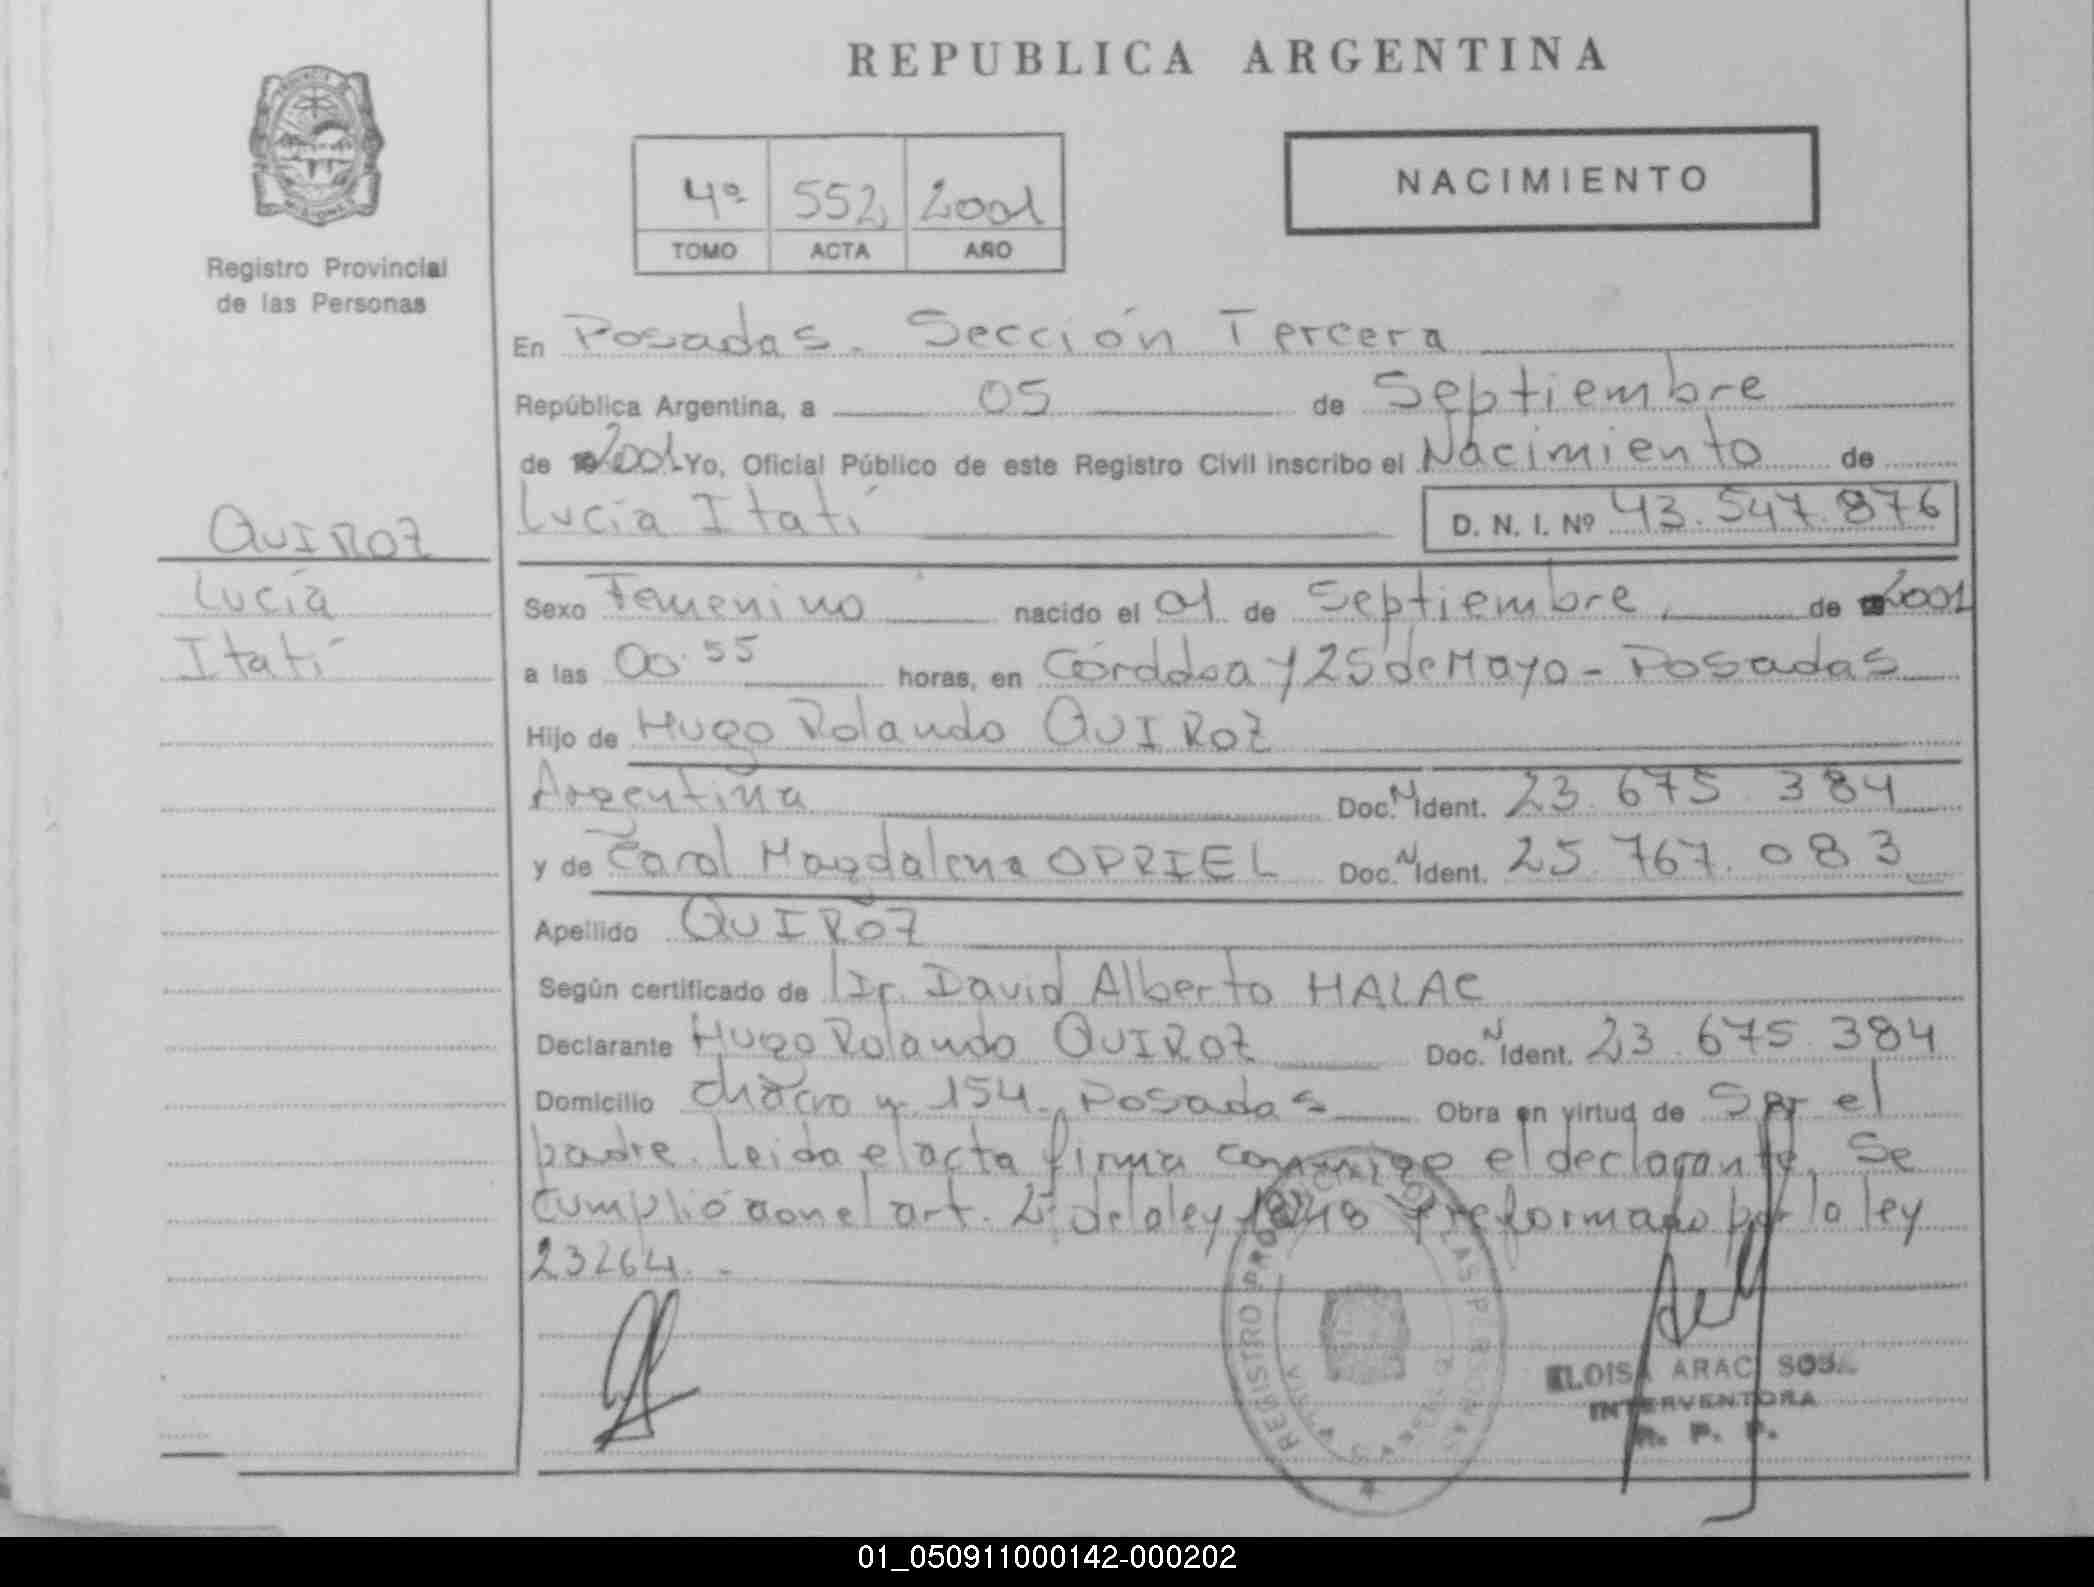 REPUBLICA ARGENTINA
4º 552 2001
TOMO ACTA AÑO
NACIMIENTO
Registro Provincial
de las Personas
QUIROZ
Lucía
Itatí
En Posadas. Sección Tercera
República Argentina, a 05 de Septiembre
de 2001 Yo, Oficial Público de este Registro Civil inscribo el Nacimiento de
Lucía Itatí D. N. I. Nº 43.547.876
Sexo Femenino nacido el 01 de Septiembre de 2001
a las 00.55 horas, en Córdoba y 25 de Mayo - Posadas
Hijo de Hugo Rolando QUIROZ
Argentina Doc. N Ident. 23.675.384
y de Carol Magdalena OPRIEL Doc. N Ident. 25.767.083
Apellido QUIROZ
Según certificado de Dr. David Alberto HALAC
Declarante Hugo Rolando QUIROZ Doc. N Ident. 23.675.384
Domicilio chacra 154. Posadas Obra en virtud de Ser el
padre. Leida el acta firma conmigo el declarante. Se
cumplió con el art. 2º de la ley 18248 reformado por la ley
23264. -
REGISTRO PROVINCIAL DE LAS PERSONAS
ELOISA ARAC SOS
INTERVENTORA
R. P. P.
01_050911000142-000202